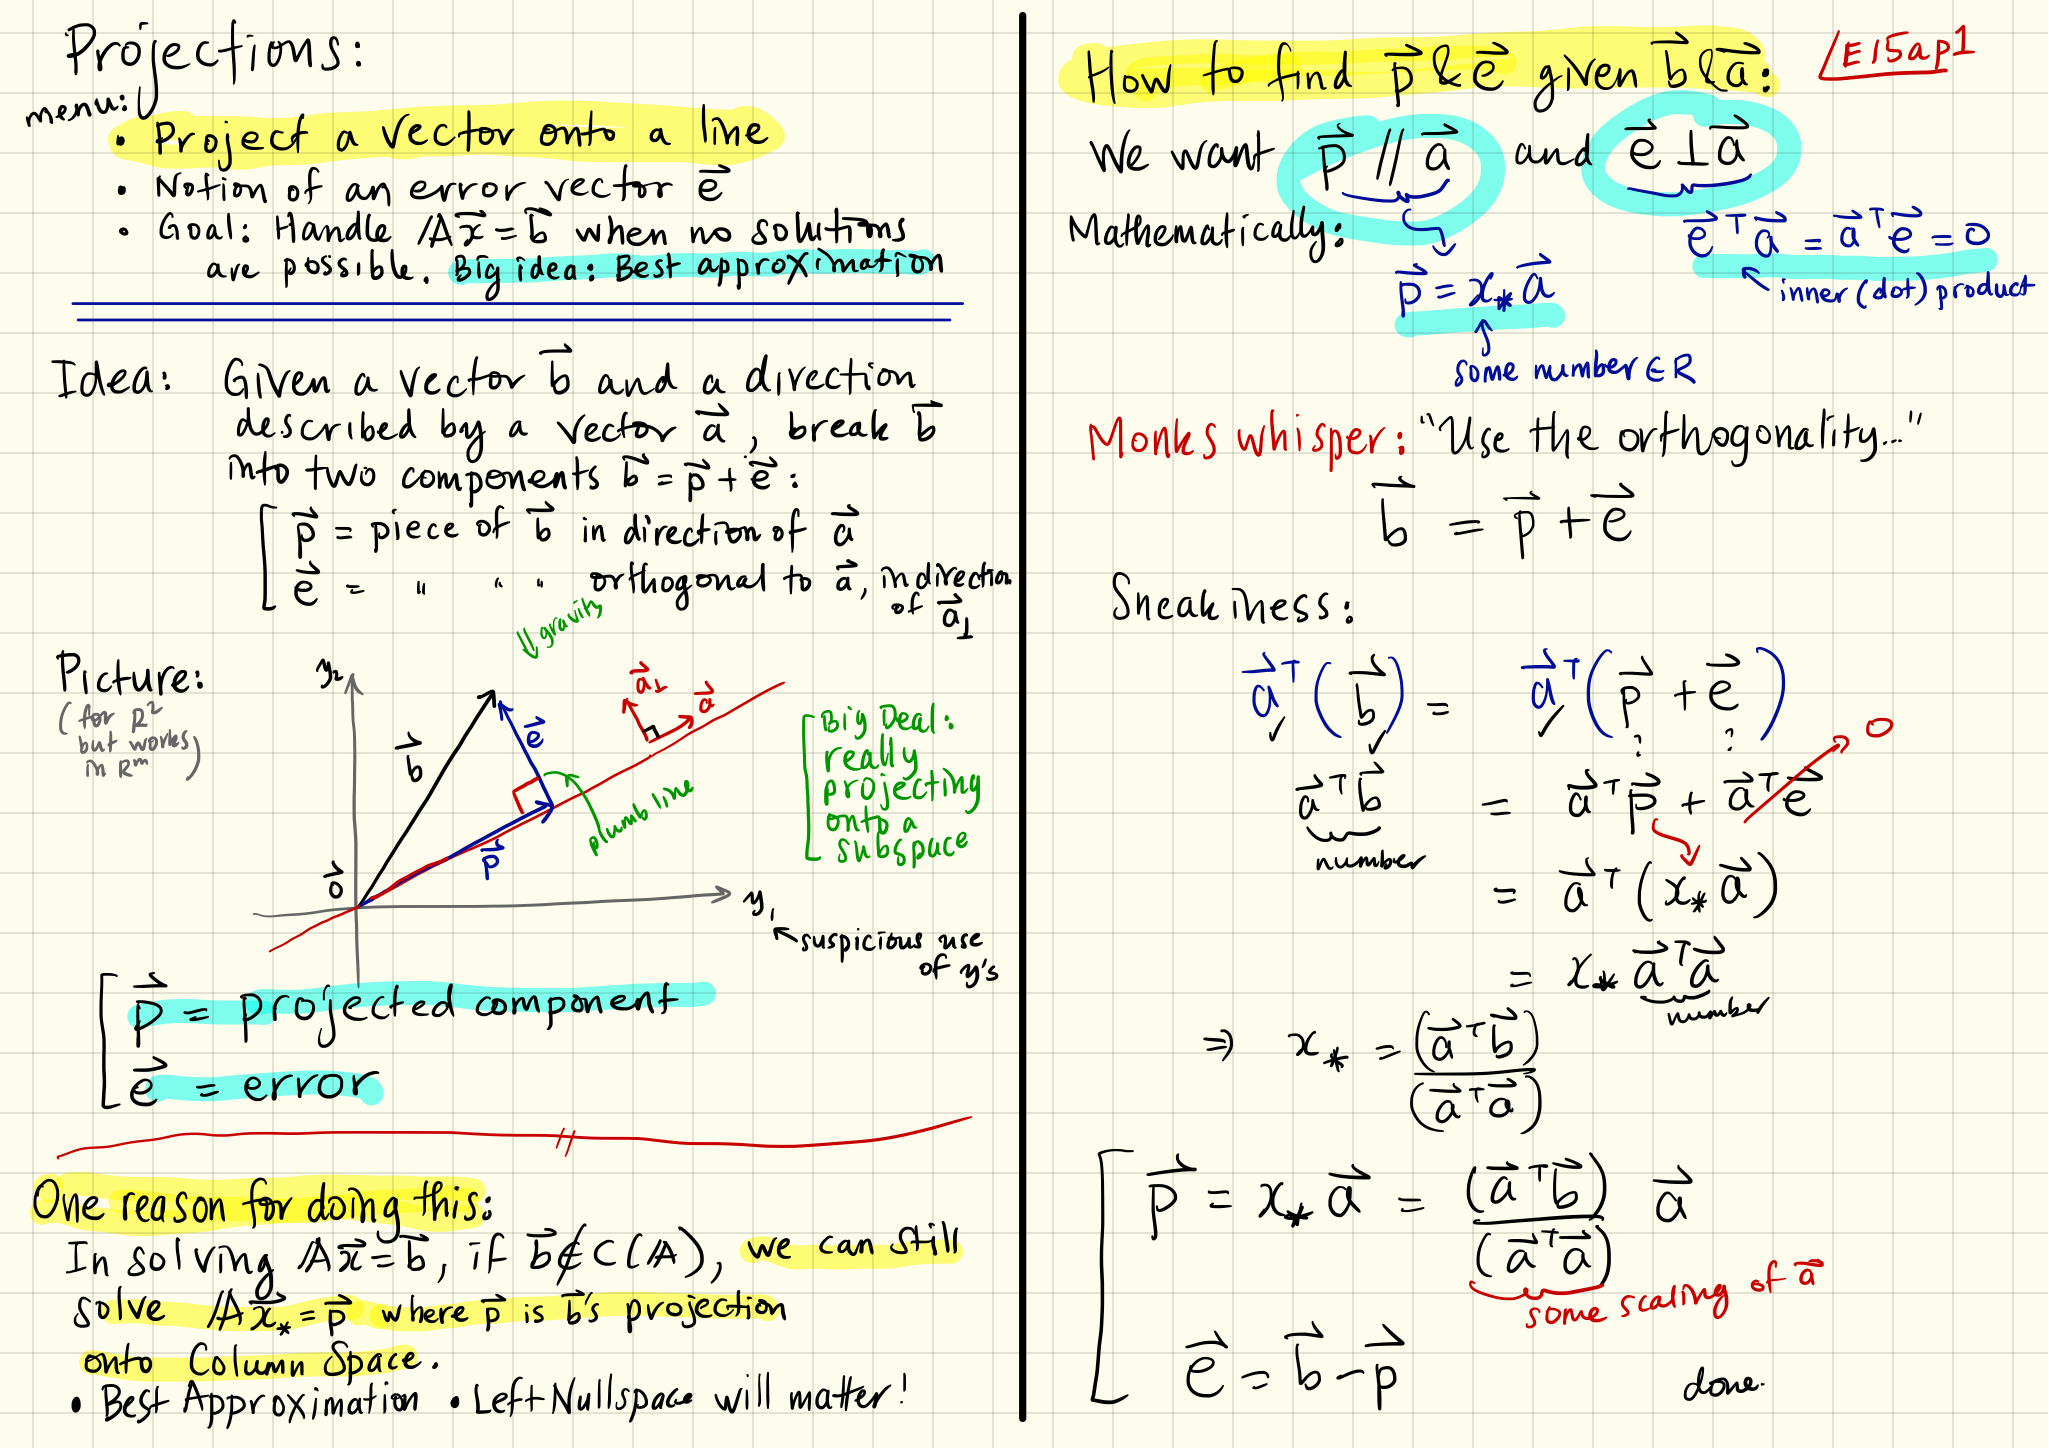 Projections:
menu:
• Project a vector onto a line
• Notion of an error vector e⃗
• Goal: Handle 𝔸x⃗ = b⃗ when no solutions
are possible. Big idea: Best approximation
Idea: Given a vector b⃗ and a direction
described by a vector a⃗, break b⃗
into two components b⃗ = p⃗ + e⃗:
p⃗ = piece of b⃗ in direction of a⃗
e⃗ = " " " orthogonal to a⃗, in direction
of a⃗⊥
⇓ gravity
Picture:
(for R²
but works
in Rᵐ)
y₂
b⃗
e⃗
a⃗⊥
a⃗
p⃗
plumb line
0⃗
y₁
Big Deal:
really
projecting
onto a
subspace
suspicious use
of y's
p⃗ = projected component
e⃗ = error
One reason for doing this:
In solving 𝔸x⃗ = b⃗, if b⃗ ∉ C(𝔸), we can still
solve 𝔸x⃗⁎ = p⃗ where p⃗ is b⃗'s projection
onto Column Space.
• Best Approximation • Left Nullspace will matter!
E15ap1
How to find p⃗ & e⃗ given b⃗ & a⃗:
We want p⃗ // a⃗ and e⃗ ⊥ a⃗
Mathematically:
e⃗ᵀa⃗ = a⃗ᵀe⃗ = 0
inner (dot) product
p⃗ = x⁎ a⃗
some number ∈ R
Monks whisper: "Use the orthogonality..."
b⃗ = p⃗ + e⃗
Sneakiness:
a⃗ᵀ(b⃗) = a⃗ᵀ(p⃗ + e⃗)
✓ ✓ ✓ ? ?
0
a⃗ᵀb⃗ = a⃗ᵀp⃗ + a⃗ᵀe⃗
number
= a⃗ᵀ(x⁎ a⃗)
= x⁎ a⃗ᵀa⃗
number
⇒ x⁎ = (a⃗ᵀb⃗) / (a⃗ᵀa⃗)
p⃗ = x⁎ a⃗ = (a⃗ᵀb⃗) / (a⃗ᵀa⃗) a⃗
some scaling of a⃗
e⃗ = b⃗ - p⃗
done.